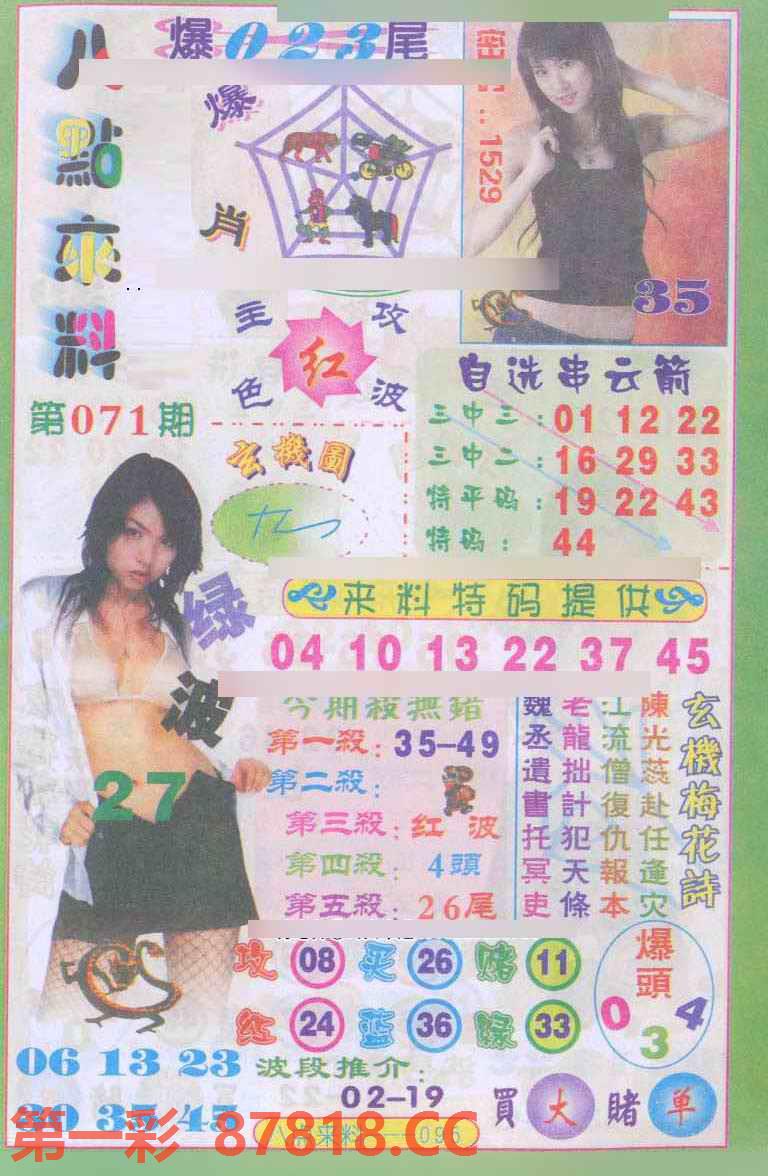 八點來料
爆023尾
爆肖
1529
35
主攻
红
色波
第071期
玄機圖
自选串云箭
三中三：01 12 22
三中二：16 29 33
特平码：19 22 43
特码：44
来料特码提供
04 10 13 22 37 45
绿波
27
今期殺無錯
第一殺：35-49
第二殺：
第三殺：红波
第四殺：4頭
第五殺：26尾
玄機梅花詩
陳光蕊赴任逢灾
江流僧復仇報本
老龍拙計犯天條
魏丞遺書托冥吏
攻 08 买 26 赌 11
红 24 蓝 36 緑 33
爆頭
0 3 4
06 13 23
波段推介：
02-19
買大賭单
第一彩 87818.CC